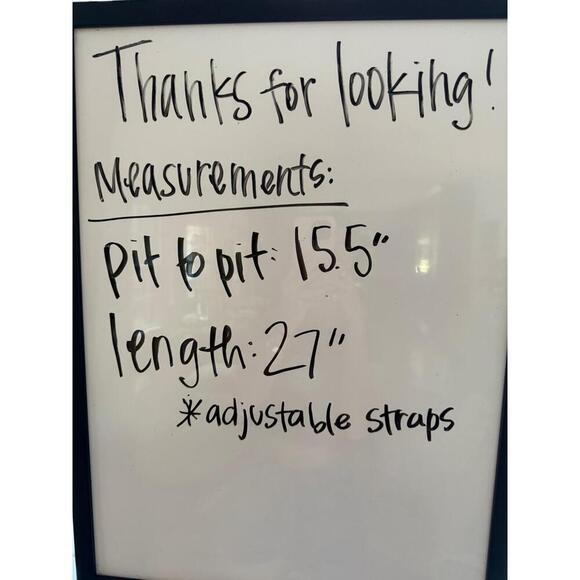 Thanks for looking!
Measurements:
pit to pit: 15.5"
length: 27"
*adjustable straps